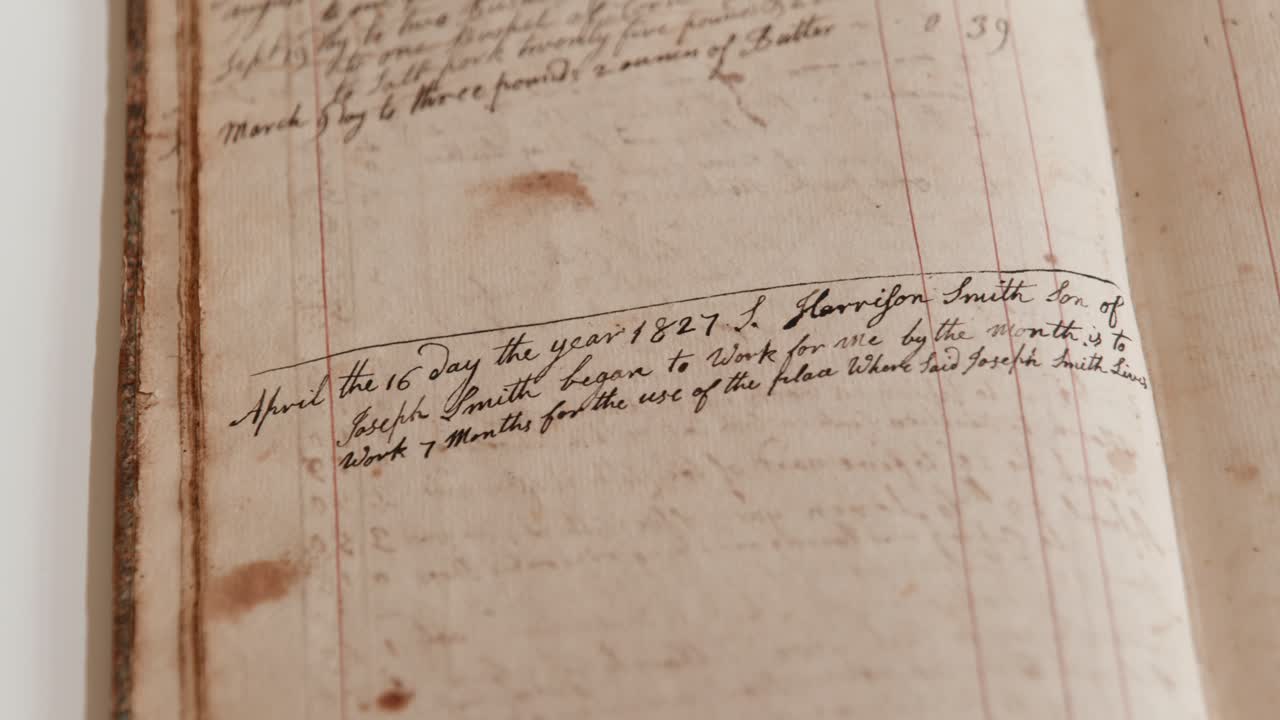 Sept 19 to one
to Salt pork twenty five pounds
March 9 Day to three pounds 2 ounces of Butter 0 39
April the 16 Day the year 1827 S. Harrison Smith Son of
Joseph Smith began to Work for me by the month. is to
Work 7 Months for the use of the place Where Said Joseph Smith Lives